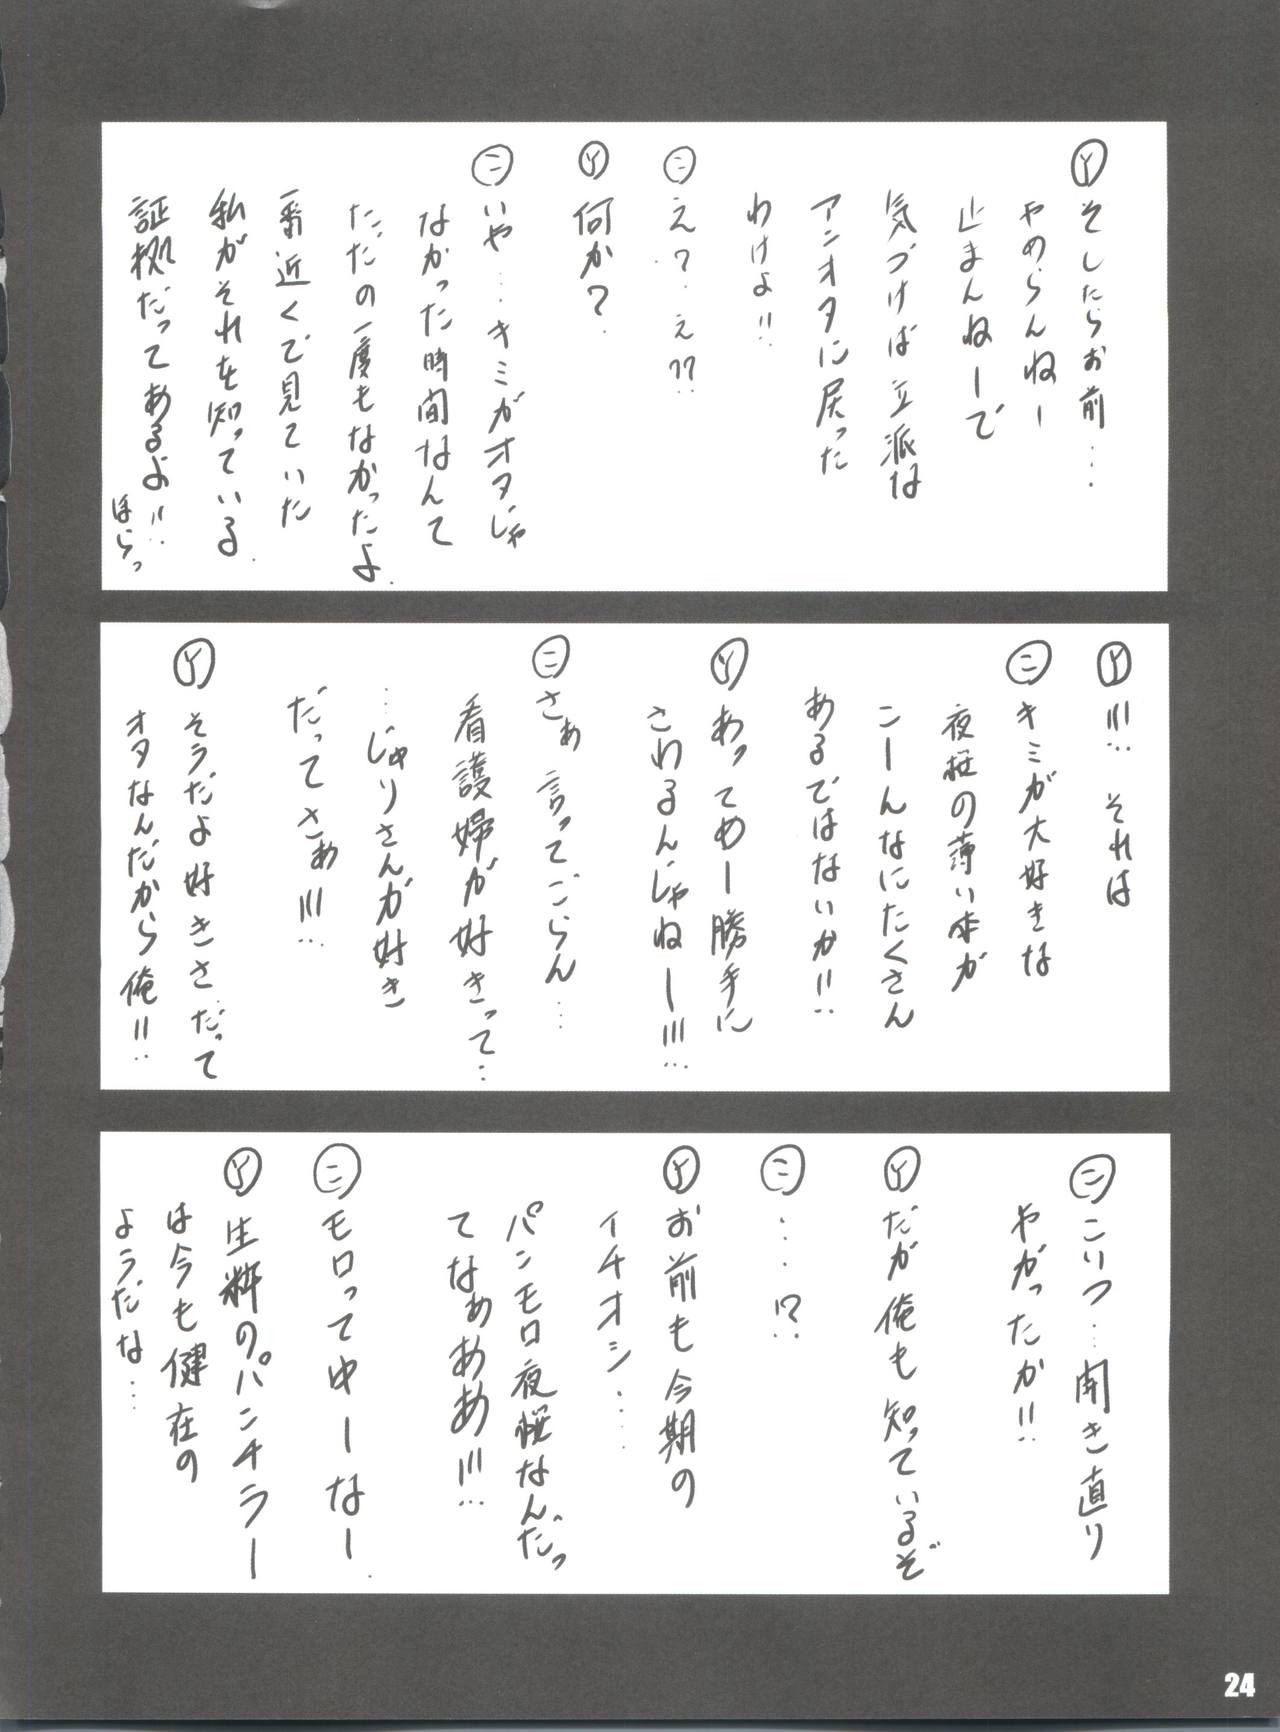 Ⓨそしたらお前…
やめらんねー
止まんねーで
気づけば立派な
アニオタに戻った
わけよ!!
㊁え?…え??
Ⓨ何か?
㊁いや…キミがオタじゃ
なかった時間なんて
ただの一度もなかったよ.
一番近くで見ていた
私がそれを知っている.
証拠だってあるよ!!
ほらっ
Ⓨ!!!… それは
㊁キミが大好きな
夜桜の薄い本が
こーんなにたくさん
あるではないか!!
Ⓨあってめー勝手に
さわるんじゃねー!!!…
㊁さぁ言ってごらん…
看護婦が好きって…
…じゅりさんが好き
だってさぁ!!!…
Ⓨそうだよ好きさだって
オタなんだから俺!!…
㊁こいつ…開き直り
やがったか!!
Ⓨだが俺も知っているぞ
㊁…!?
Ⓨお前も今期の
イチオシ…
パンモロ夜桜なんだっ
てなぁああ!!!…
㊁モロってゆーなー.
Ⓨ生粋のパンチラー
は今も健在の
ようだな…
24